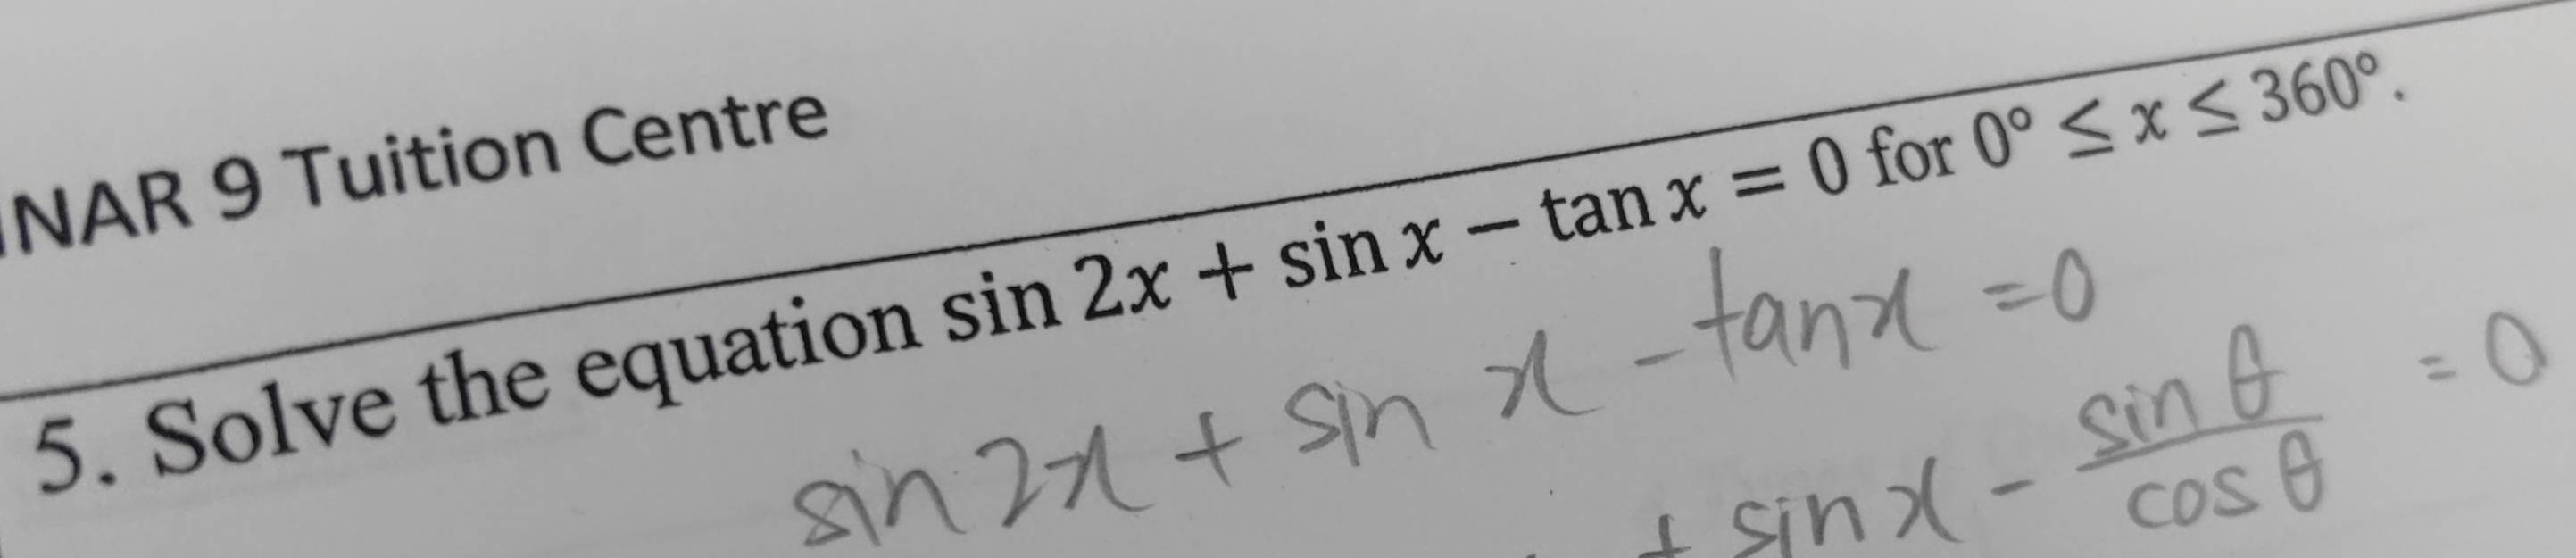 NAR 9 Tuition Centre
5. Solve the equation sin 2x + sin x − tan x = 0 for 0° ≤ x ≤ 360°.
sin 2x + sin x − tan x = 0
+ sin x − sin θ / cos θ = 0